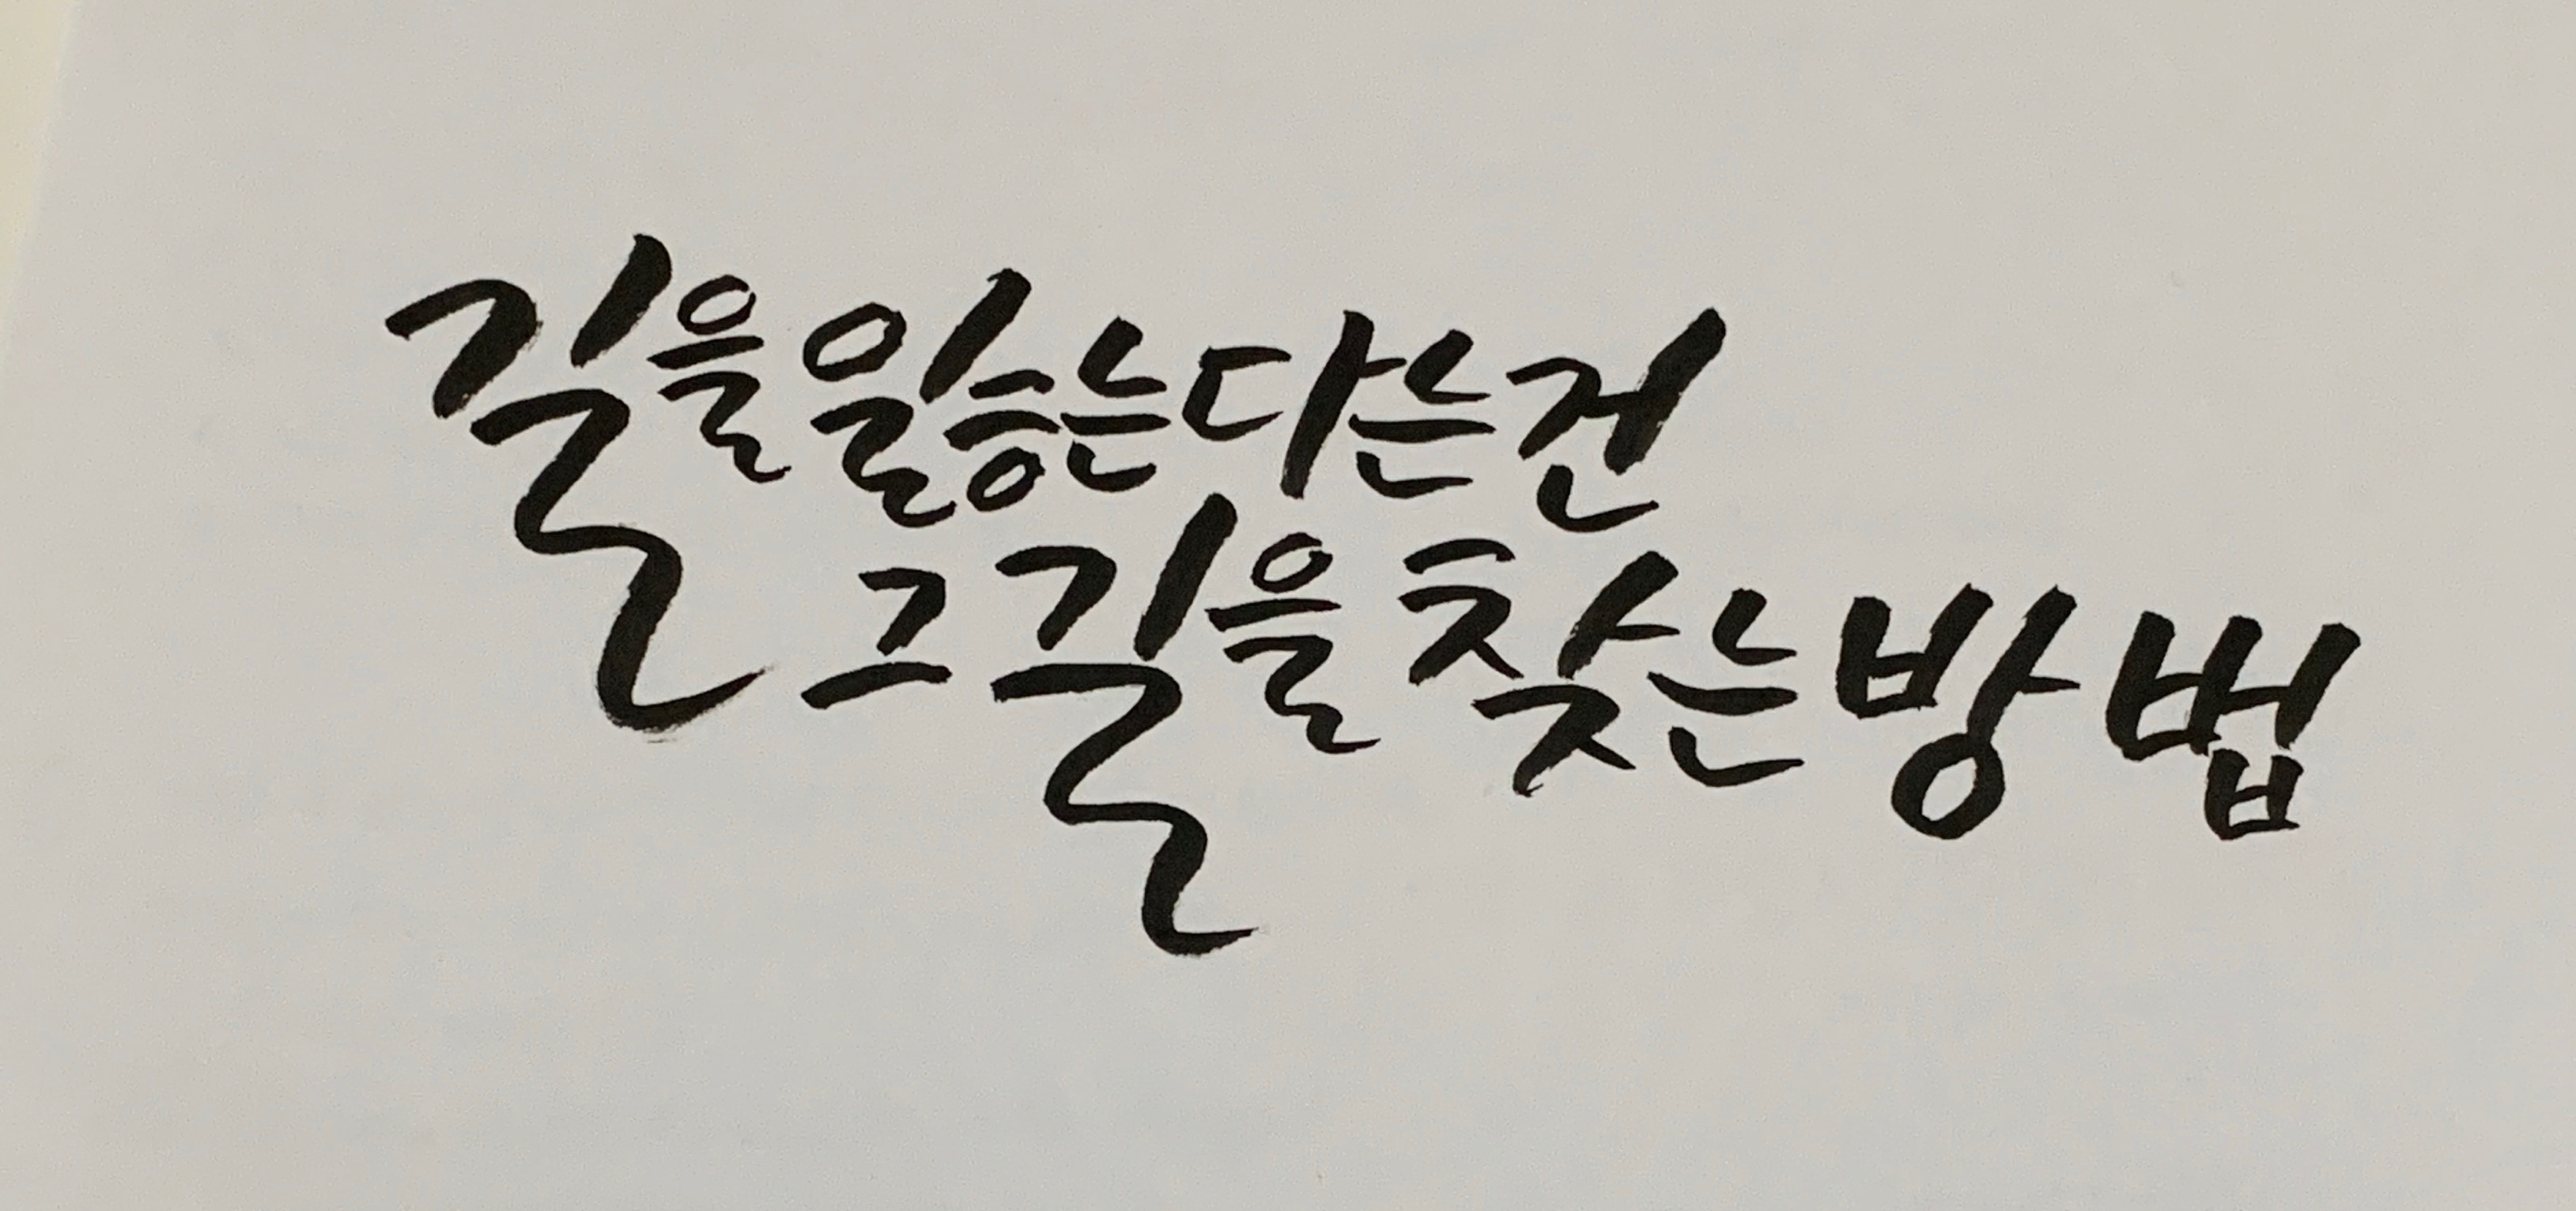 길을 잃는다는 건
그 길을 찾는 방법